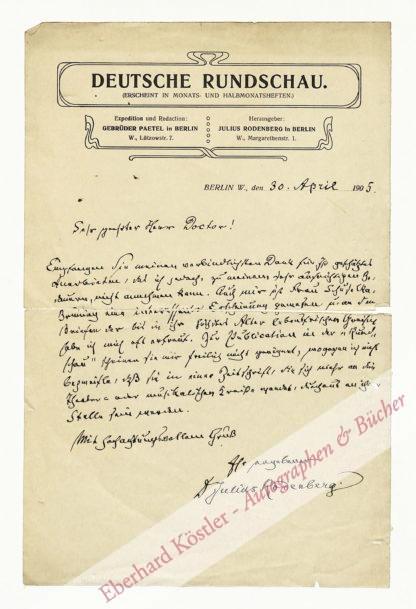 DEUTSCHE RUNDSCHAU.
(ERSCHEINT IN MONATS- UND HALBMONATSHEFTEN.)
Expedition und Redaction:
GEBRÜDER PAETEL in BERLIN
W., Lützowstr. 7.
Herausgeber:
JULIUS RODENBERG in BERLIN
W., Margarethenstr. 1.
BERLIN W., den 30. April 1905.
Sehr geehrter Herr Doctor!
Empfangen Sie meinen verbindlichsten Dank für Ihr gefälliges
Anerbieten, das ich jedoch, zu meinem sehr aufrichtigen Be-
dauern, nicht annehmen kann. Auch mir ist Frau
eine Erscheinung gewesen, u. an den
Briefen der bis in ihr höchstes Alter lebensfrischen
habe ich mich oft erfreut. Zur Publication in der „Rund-
schau" scheinen sie mir freilich nicht geeignet, wogegen ich nicht
bezweifle, daß sie in einer Zeitschrift, die sich mehr an die
Theater- oder musikalischen Kreise wendet, durchaus an ihrer
Stelle sein werden.
Mit hochachtungsvollem Gruß
Ihr ergebener
Dr Julius Rodenberg.
Eberhard Köstler - Autographen & Bücher